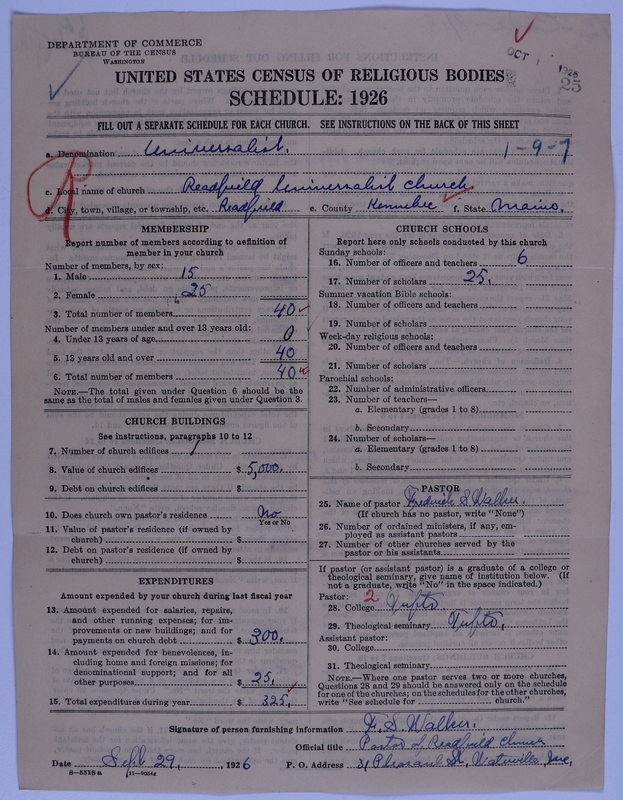 DEPARTMENT OF COMMERCE
BUREAU OF THE CENSUS
WASHINGTON
OCT 1926
25
UNITED STATES CENSUS OF RELIGIOUS BODIES
SCHEDULE: 1926
FILL OUT A SEPARATE SCHEDULE FOR EACH CHURCH. SEE INSTRUCTIONS ON THE BACK OF THIS SHEET
a. Denomination Universalist. 1-9-7
c. Local name of church Readfield Universalist Church
d. City, town, village, or township, etc. Readfield e. County Kennebec f. State Maine.
MEMBERSHIP
Report number of members according to definition of
member in your church
Number of members, by sex:
1. Male 15
2. Female 25
3. Total number of members 40
Number of members under and over 13 years old:
4. Under 13 years of age 0
5. 13 years old and over 40
6. Total number of members 40
NOTE.—The total given under Question 6 should be the
same as the total of males and females given under Question 3.
CHURCH BUILDINGS
See instructions, paragraphs 10 to 12
7. Number of church edifices 1
8. Value of church edifices $5,000.
9. Debt on church edifices $
10. Does church own pastor's residence No
Yes or No
11. Value of pastor's residence (if owned by
church) $
12. Debt on pastor's residence (if owned by
church) $
EXPENDITURES
Amount expended by your church during last fiscal year
13. Amount expended for salaries, repairs,
and other running expenses; for im-
provements or new buildings; and for
payments on church debt $300.
14. Amount expended for benevolences, in-
cluding home and foreign missions; for
denominational support; and for all
other purposes $25.
15. Total expenditures during year $325.
CHURCH SCHOOLS
Report here only schools conducted by this church
Sunday schools:
16. Number of officers and teachers 6
17. Number of scholars 25.
Summer vacation Bible schools:
18. Number of officers and teachers
19. Number of scholars
Week-day religious schools:
20. Number of officers and teachers
21. Number of scholars
Parochial schools:
22. Number of administrative officers
23. Number of teachers—
a. Elementary (grades 1 to 8)
b. Secondary
24. Number of scholars—
a. Elementary (grades 1 to 8)
b. Secondary
PASTOR
25. Name of pastor Frederick S. Walker.
(If church has no pastor, write "None")
26. Number of ordained ministers, if any, em-
ployed as assistant pastors
27. Number of other churches served by the
pastor or his assistants
If pastor (or assistant pastor) is a graduate of a college or
theological seminary, give name of institution below. (If
not a graduate, write "No" in the space indicated.)
Pastor: 2
28. College Tufts
29. Theological seminary Tufts,
Assistant pastor:
30. College
31. Theological seminary
NOTE.—Where one pastor serves two or more churches,
Questions 28 and 29 should be answered only on the schedule
for one of the churches; on the schedules for the other churches,
write "See schedule for church."
Signature of person furnishing information F. S. Walker.
Official title Pastor of Readfield Church
Date Sept 29, 1926 P. O. Address 31 Pleasant St, Waterville Me,
8-5518a 11-9054